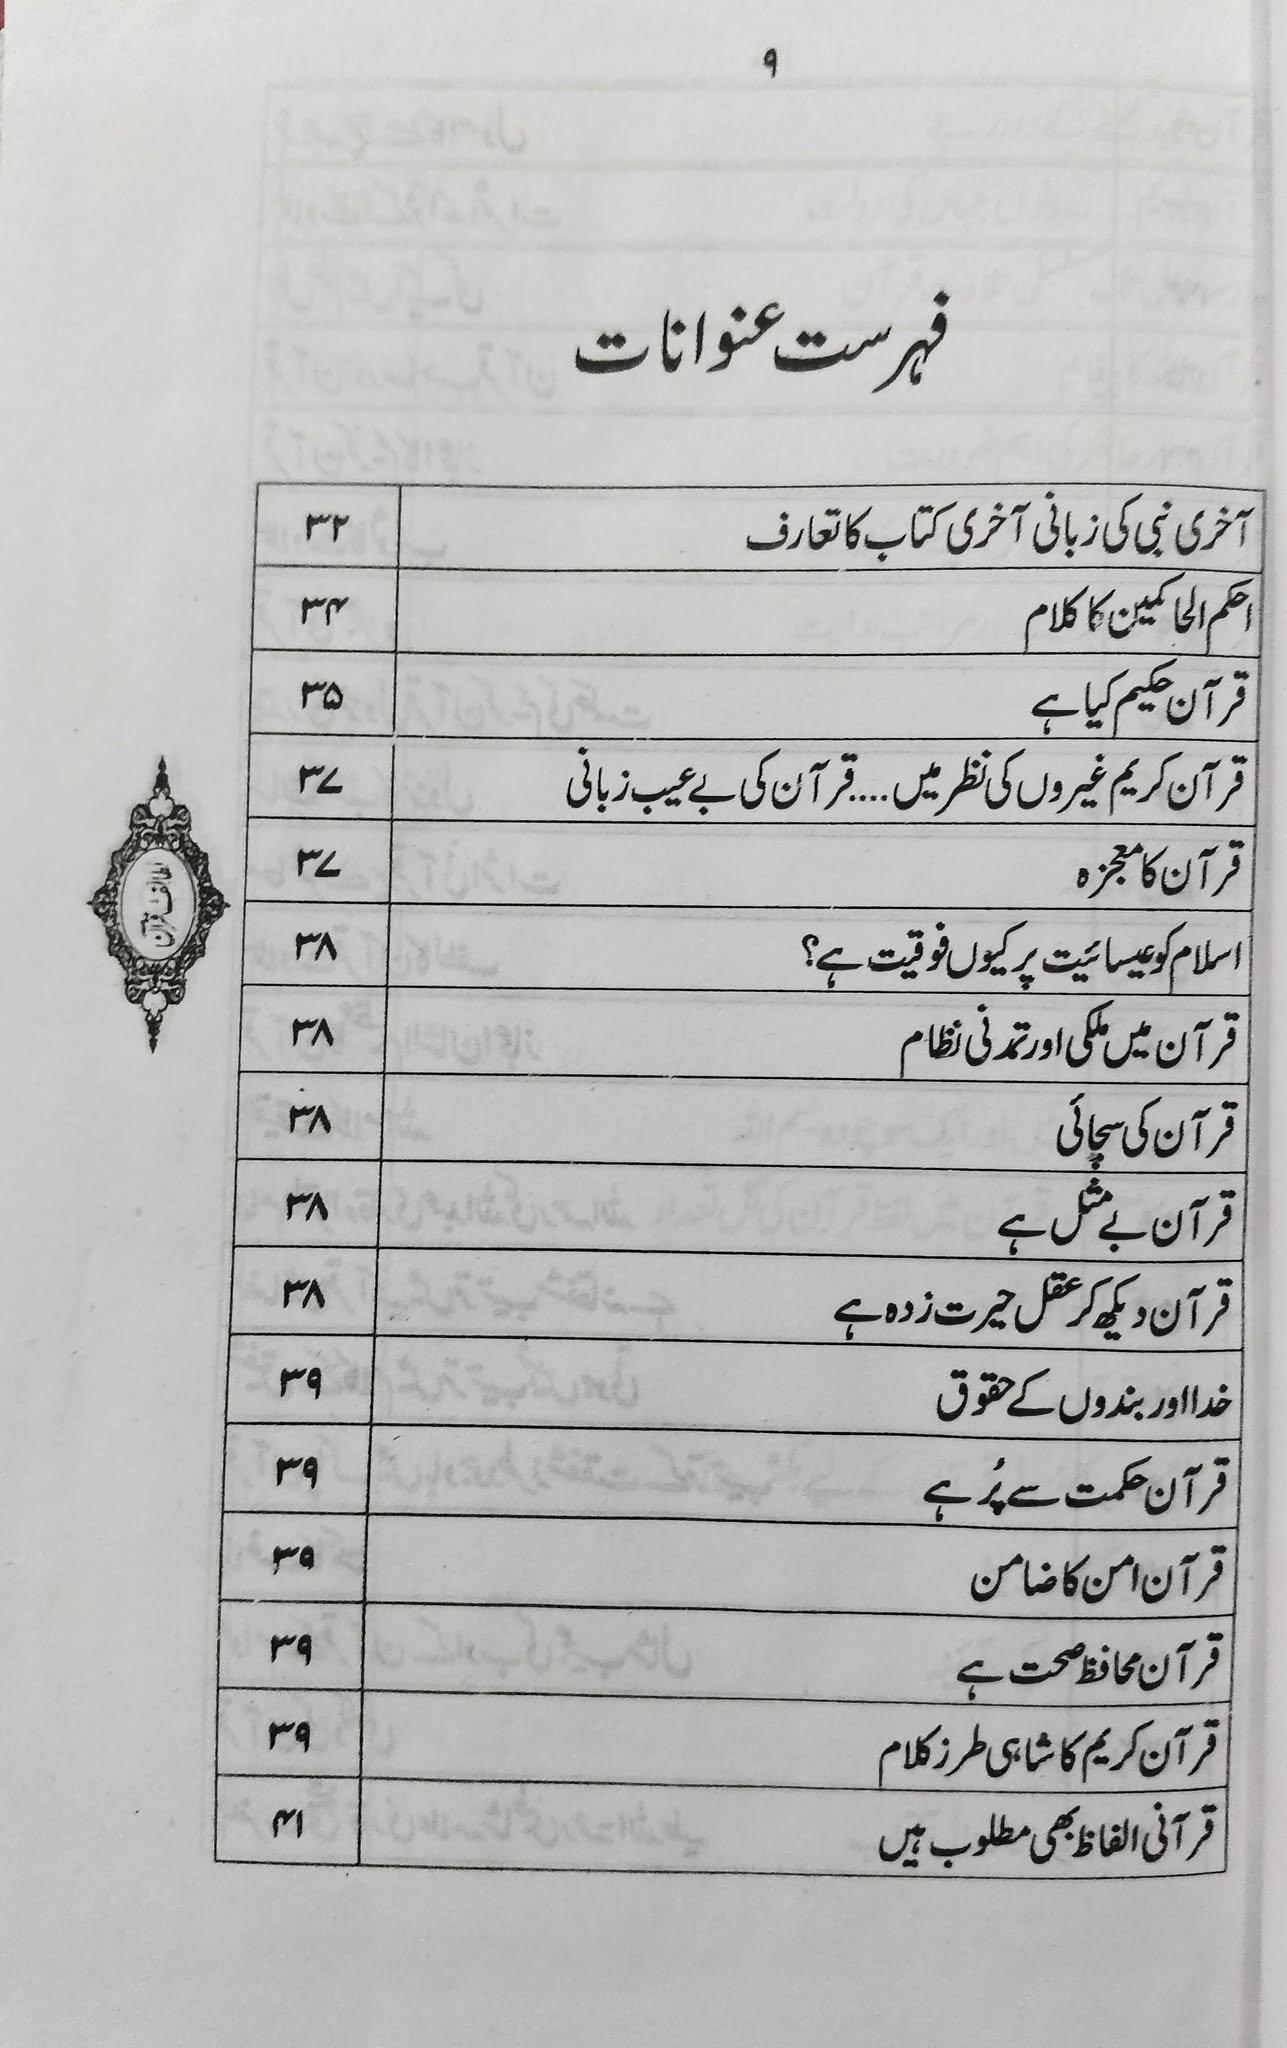 ۹
فہرست عنوانات
آخری نبی کی زبانی آخری کتاب کا تعارف ۳۲
احکم الحاکمین کا کلام ۳۴
قرآن حکیم کیا ہے ۳۵
قرآن کریم غیروں کی نظر میں....قرآن کی بے عیب زبانی ۳۷
قرآن کا معجزہ ۳۷
اسلام کو عیسائیت پر کیوں فوقیت ہے؟ ۳۸
قرآن میں ملکی اور تمدنی نظام ۳۸
قرآن کی سچائی ۳۸
قرآن بے مثل ہے ۳۸
قرآن دیکھ کر عقل حیرت زدہ ہے ۳۸
خدا اور بندوں کے حقوق ۳۹
قرآن حکمت سے پُر ہے ۳۹
قرآن امن کا ضامن ۳۹
قرآن محافظ صحت ہے ۳۹
قرآن کریم کا شاہی طرز کلام ۳۹
قرآنی الفاظ بھی مطلوب ہیں ۴۱